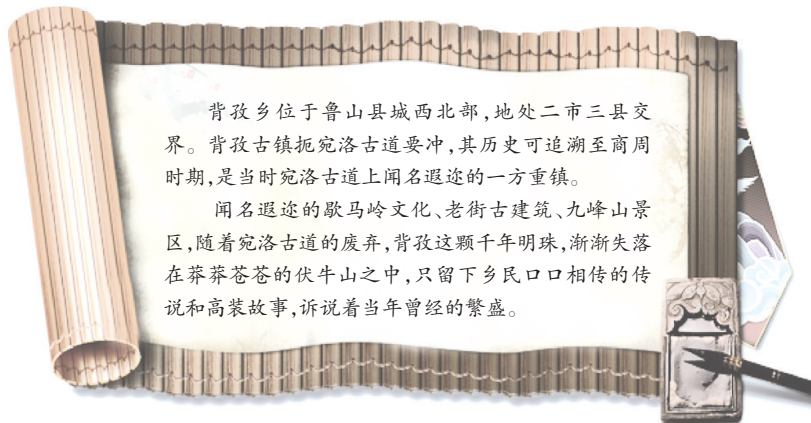 背孜乡位于鲁山县城西北部,地处二市三县交
界。背孜古镇扼宛洛古道要冲,其历史可追溯至商周
时期,是当时宛洛古道上闻名遐迩的一方重镇。
闻名遐迩的歇马岭文化、老街古建筑、九峰山景
区,随着宛洛古道的废弃,背孜这颗千年明珠,渐渐失落
在莽莽苍苍的伏牛山之中,只留下乡民口口相传的传
说和高装故事,诉说着当年曾经的繁盛。